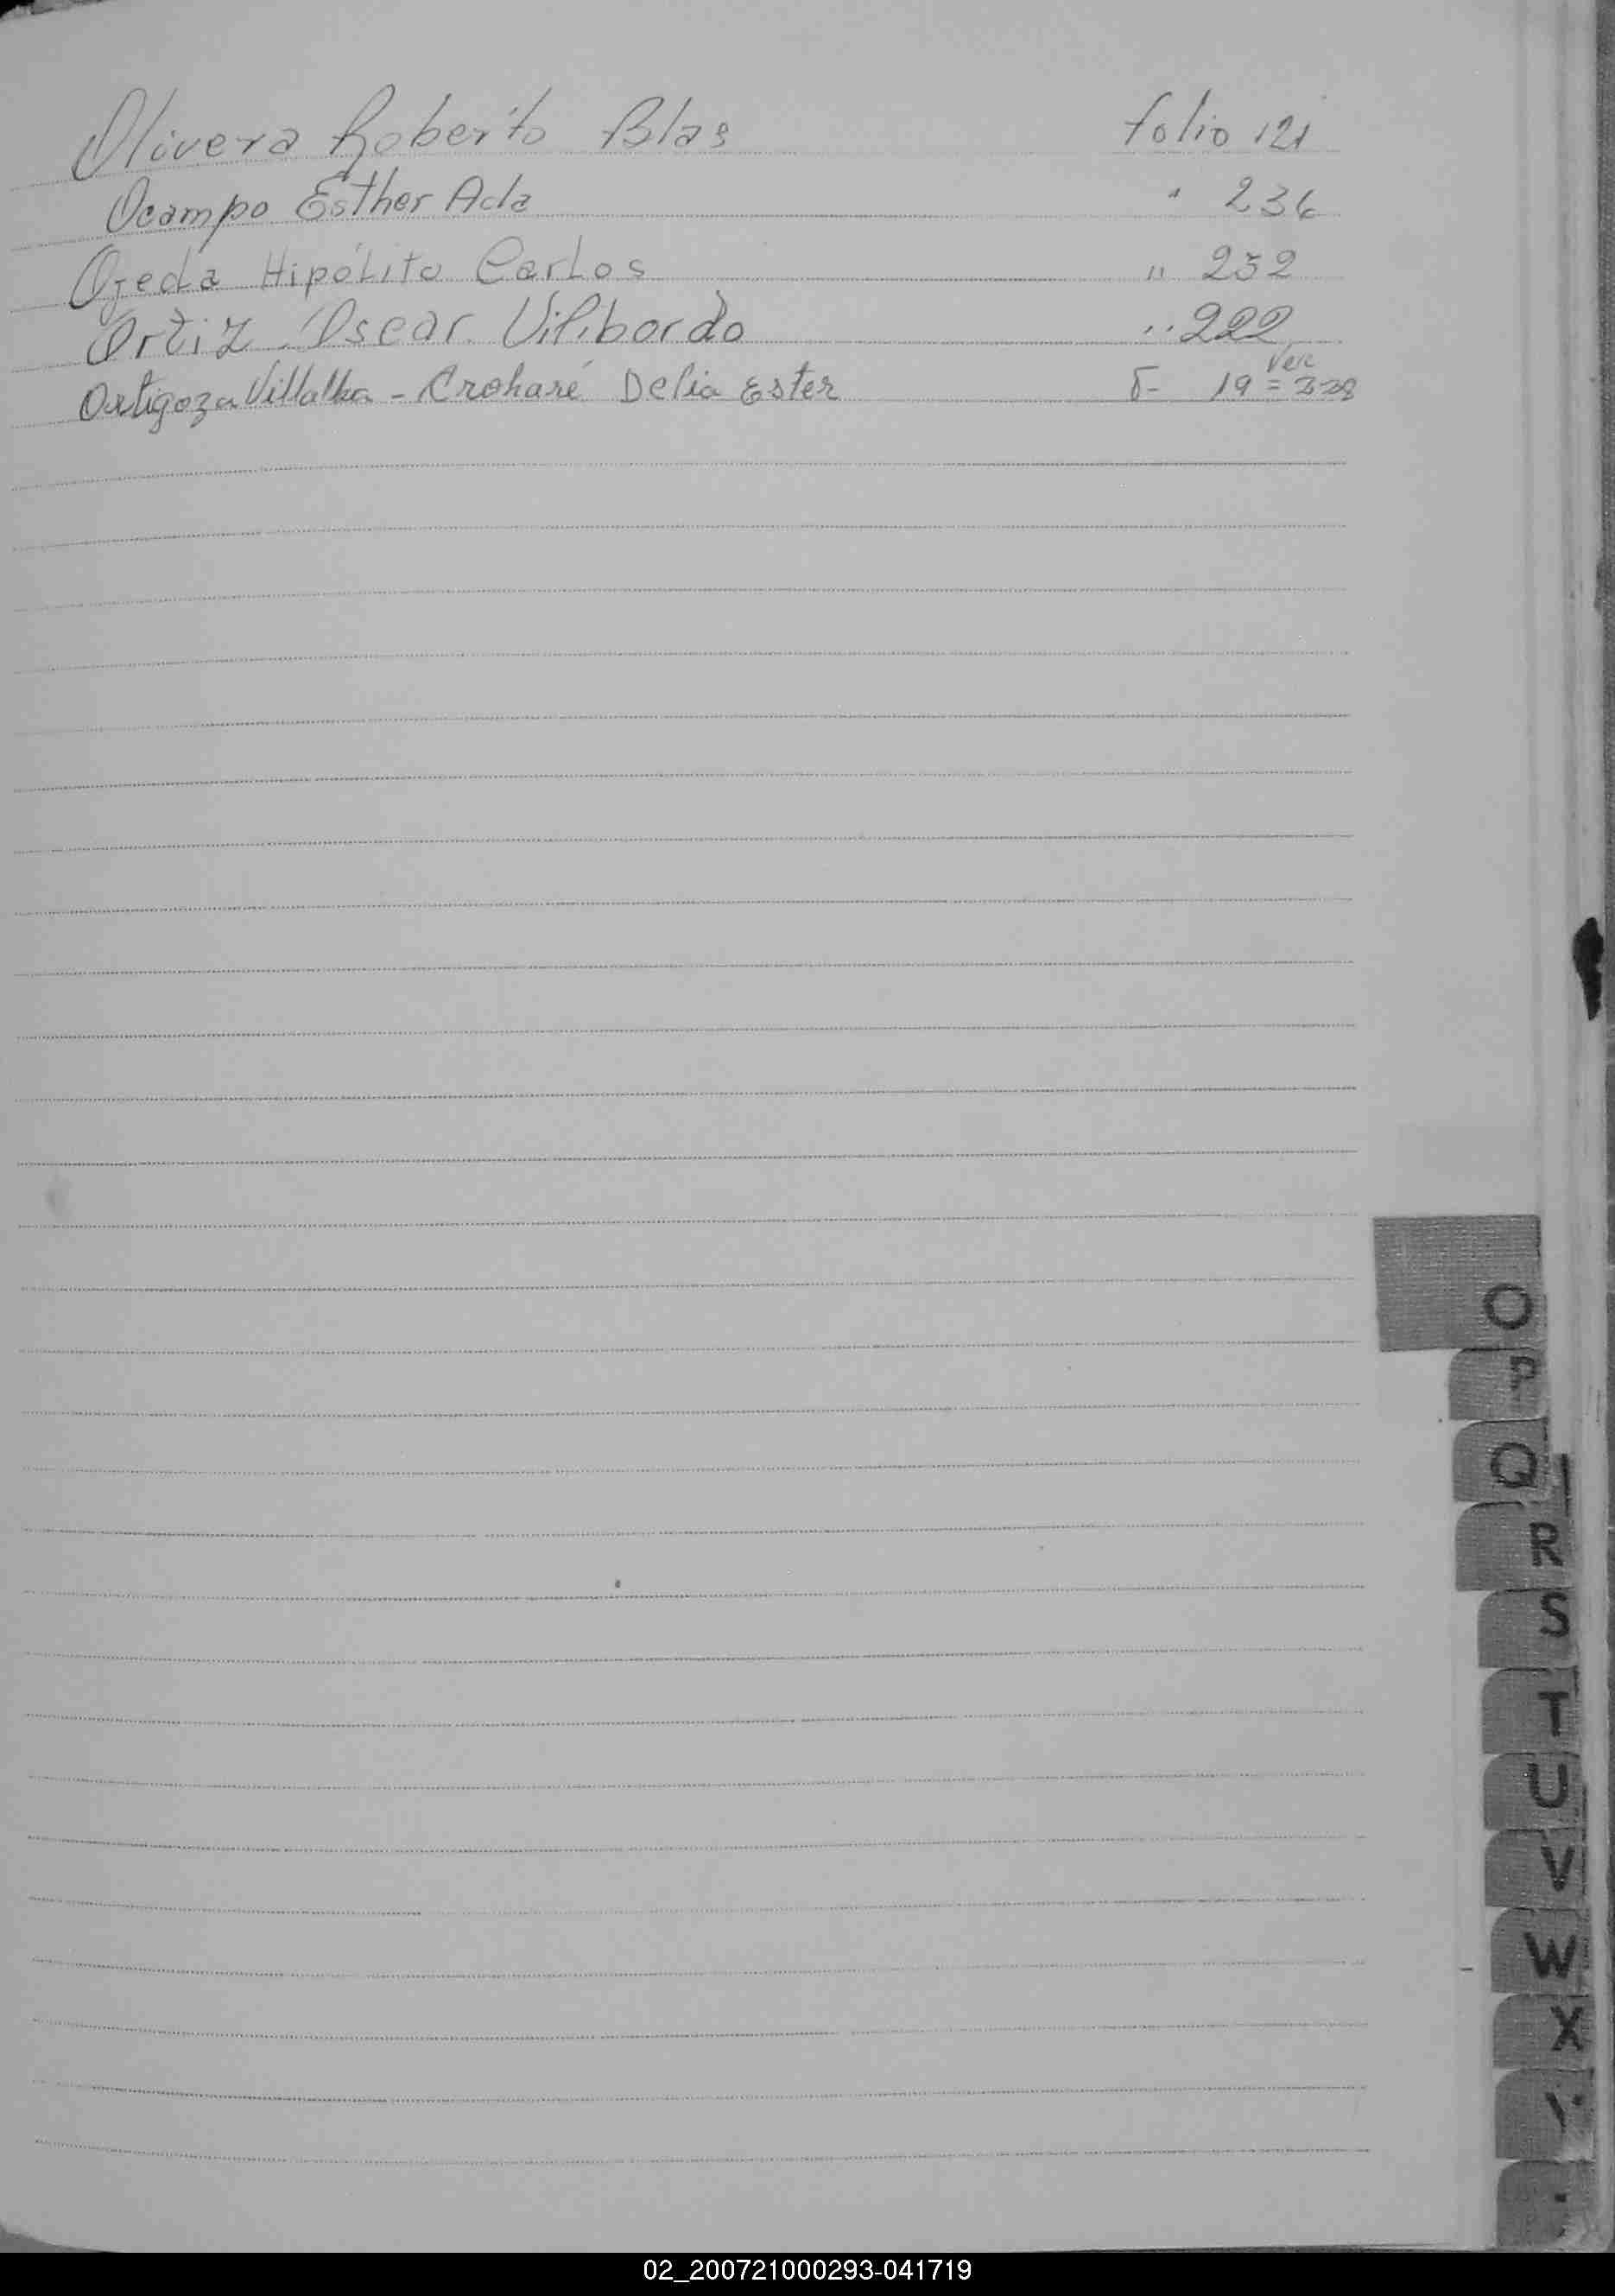 Olivera Roberto Blas folio 121
Ocampo Esther Ada " 236
Ojeda Hipólito Carlos " 252
Ortiz Oscar Vilibordo " 222
Ver
Ortigoza Villalba - Croharé Delia Ester 19 = 328
O
P
Q
R
S
T
U
V
W
X
Y
02_200721000293-041719